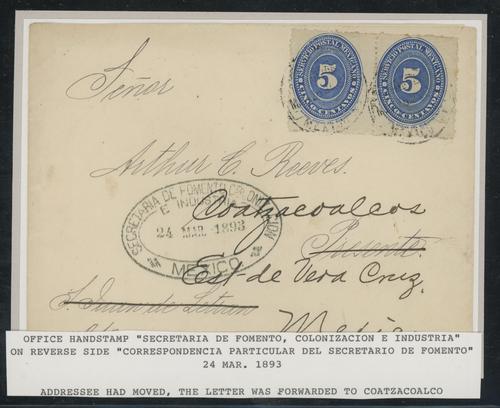 SERVICIO POSTAL MEXICANO
5
CINCO CENTAVOS
SERVICIO POSTAL MEXICANO
5
CINCO CENTAVOS
MEXICO
Señor
Arthur C. Reeves.
SECRETARIA DE FOMENTO, COLONIZACION
E INDUSTRIA
Coatzacoalcos
24 MAR. 1893
Presente.
MEXICO
Est. de Vera Cruz.
S. Juan de Letran
OFFICE HANDSTAMP "SECRETARIA DE FOMENTO, COLONIZACION E INDUSTRIA"
ON REVERSE SIDE "CORRESPONDENCIA PARTICULAR DEL SECRETARIO DE FOMENTO"
24 MAR. 1893
ADDRESSEE HAD MOVED, THE LETTER WAS FORWARDED TO COATZACOALCO